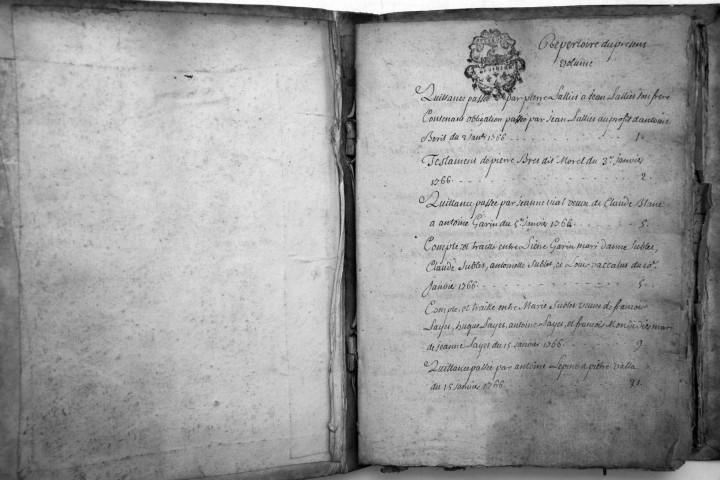 Repertoire du present
volume
Quittance passée par pierre Sallies a Jean Sallies son frere
Contenant obligation passée par Jean Sallies au profit d'antoine
du 2 Janv.r 1766 - - - 1.
Testament de pierre Bret dit Morel du 3.e Janvier
1766 - - - 2.
Quittance passée par Jeanne vial veuve de Claude Blanc
a antoine Garin du 5.e janvier 1766 - - - 5.
Compte, et traitté entre Garin mari d'anne Sublet,
Claude Sublet, antoinette Sublet, et Louis du 10.e
Janvier 1766 - - - 5.
Compte, et traitté entre Marie Sublet veuve de francois
Sayet, hugue Sayet, antoine Sayet, et francois mari
de jeanne Sayet du 15 Janvier 1766 - - 9.
Quittance passée par antoine Lepine a pierre valla
du 15 Janvier 1766 - - -